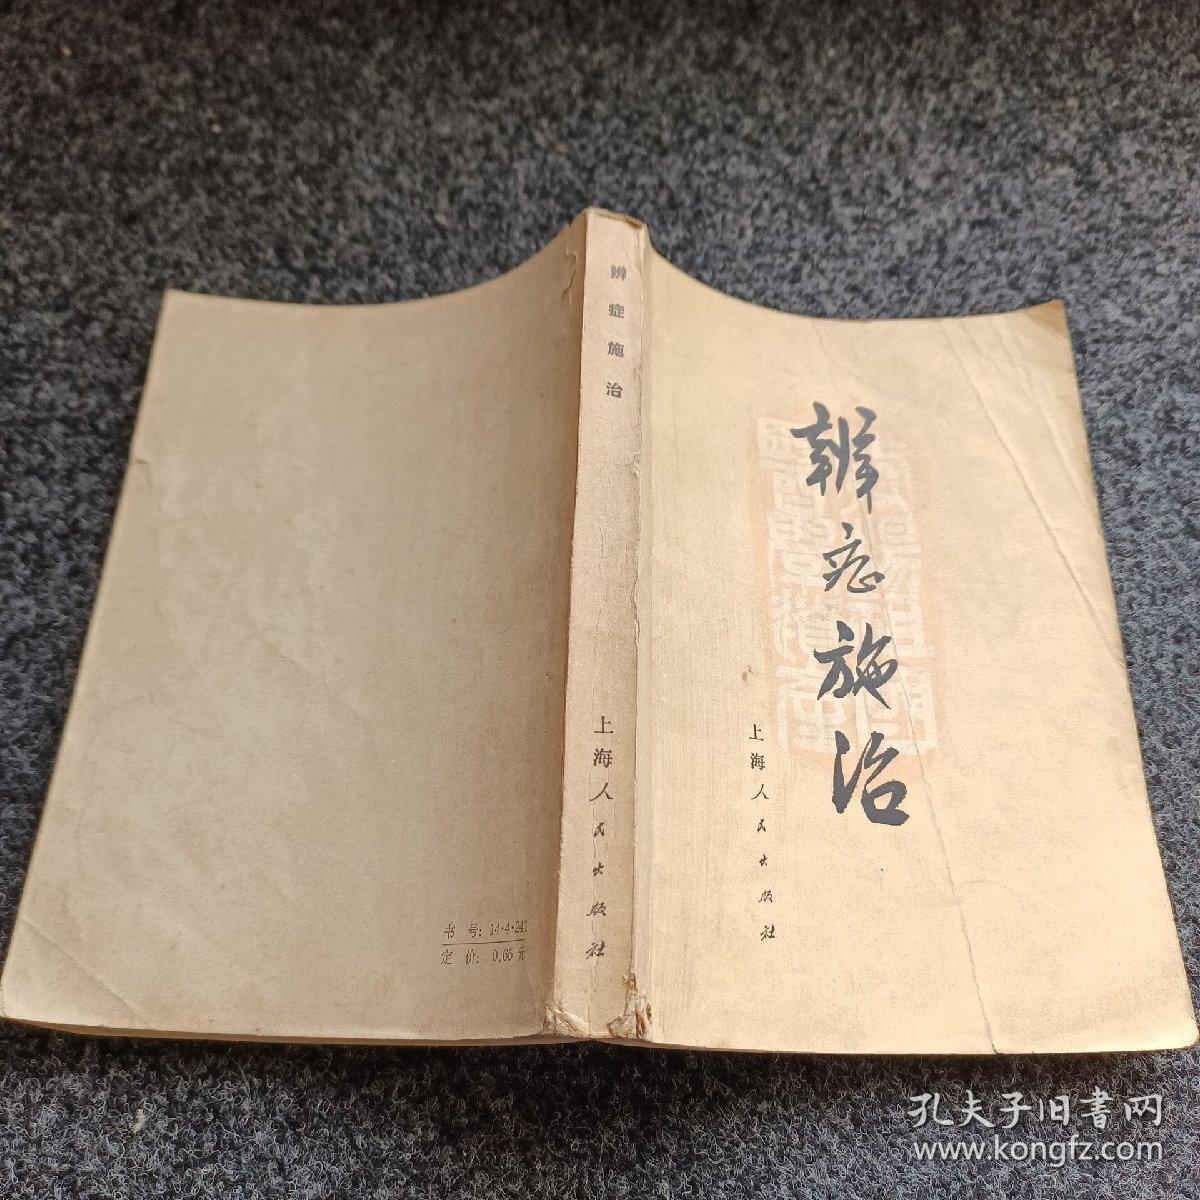 辨症施治
上海人民出版社
辨症施治
上海人民出版社
书号：14·4·241
定价：0.65元
孔夫子旧书网
www.kongfz.com